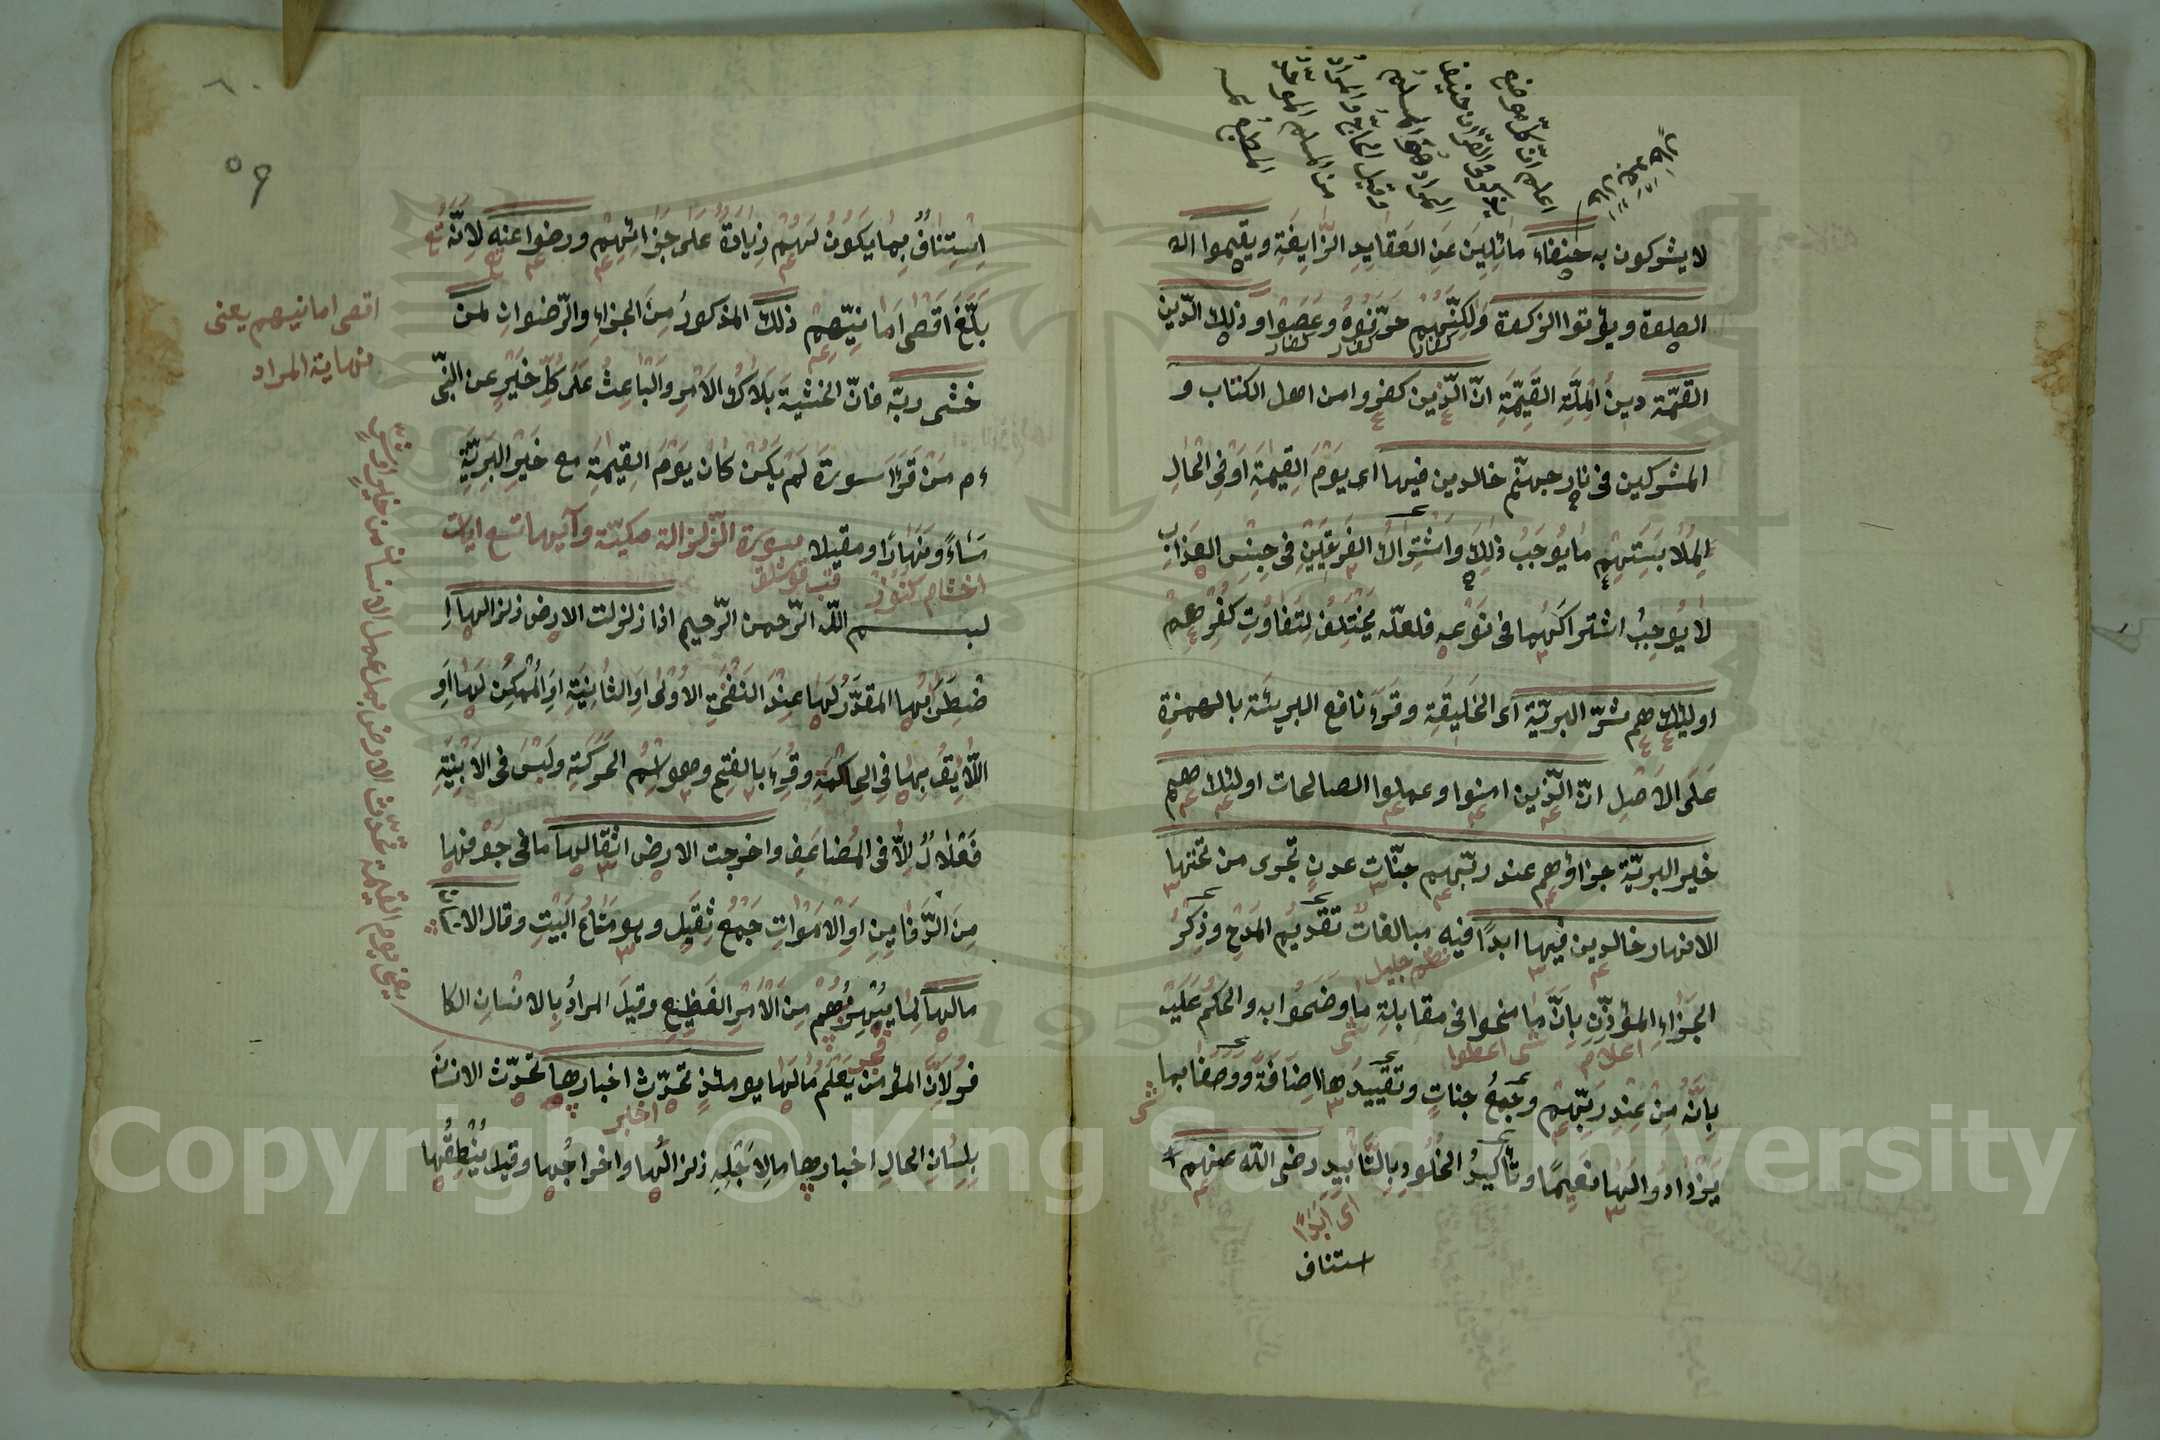 اعلم ان كل موضع
في القرآن حنيفا
المراد منه المسلم
وقيل الحاج والمراد
من المسلم الموحد
لا يشركون به حنفاء مائلين عن العقايد الزايغة ويقيموا الـ
الصلوة ويؤتوا الزكوة ولكنهم حرفوه وعصوا وذلك الدين
القيّمة دين الملة القيّمة انّ الّذين كفروا من اهل الكتاب و
المشركين في نار جهنّم خالدين فيها اى يوم القيمة او في الحال
لملابستهم ما يوجب ذلك واشتراك الفريقين في جنس العذاب
لا يوجب اشتراكهما في نوعه فلعلّه يختلف لتفاوت كفرهم
اولئك هم شرّ البريّة اى الخليقة وقرء نافع البريئة بالهمزة
على الاصل انّ الّذين امنوا وعملوا الصالحات اولئك هم
خير البريّة جزاؤهم عند ربّهم جنّات عدن تجرى من تحتها
الانهار خالدين فيها ابدًا فيه مبالغات تقديم المدح وذكر
الجزاء المؤذن بانّ ما منحوا في مقابلة ما وصفوا به والحكم عليه
اعلام
اعطوا
بانّه من عند ربّهم وجمع جنات وتقييدها اضافة ووصفا بما
يزداد والها نعيما وتأكيد الخلود بالتأبيد رضى اللّه عنهم
اى ابدا
استناف
٥٩
استيناف بما يكون لهم زيادة على جزائهم ورضوا عنه لانّه
بلّغ اقصى امانيّهم ذلك المذكور من الجزاء والرّضوان لمن
اقصى امانيهم يعنى
نهاية المراد
خشى ربّه فانّ الخشية ملاك الامر والباعث على كلّ خير عن النبى
ءم من قرا سورة لم يكن كان يوم القيمة مع خير البرية
مساءً ونهارًا ومقيلا سورة الزلزالة مكيّة وآيها تسع ايات
بسم اللّه الرّحمن الرّحيم اذا زلزلت الارض زلزالها ا
ضطرابها المقدّر لها عند النفخة الاولى او الثانية او الممكن لها او
اللّايق بها في الحكمة وقرء بالفتح وهو اسم الحركة وليس في الابنية
فعلال الّا في المضاعف واخرجت الارض اثقالها ما في جوفها
من الدّفاين او الاموات جمع ثقل وهو متاع البيت وقال الانسان
مالها لما يبهرهم من الامر الفظيع وقيل المراد بالانسان الكا
فر لانّ المؤمن يعلم مالها يومئذ تحدّث اخبارها تحدّث الانسان
بلسان الحال اخبارها ما لاجله زلزالها واخراجها وقيل ينطقها
يعنى يوم القيمة تحدّث الارض بما عمل الانسان من خير او شرّ
Copyright © King Saud University
195